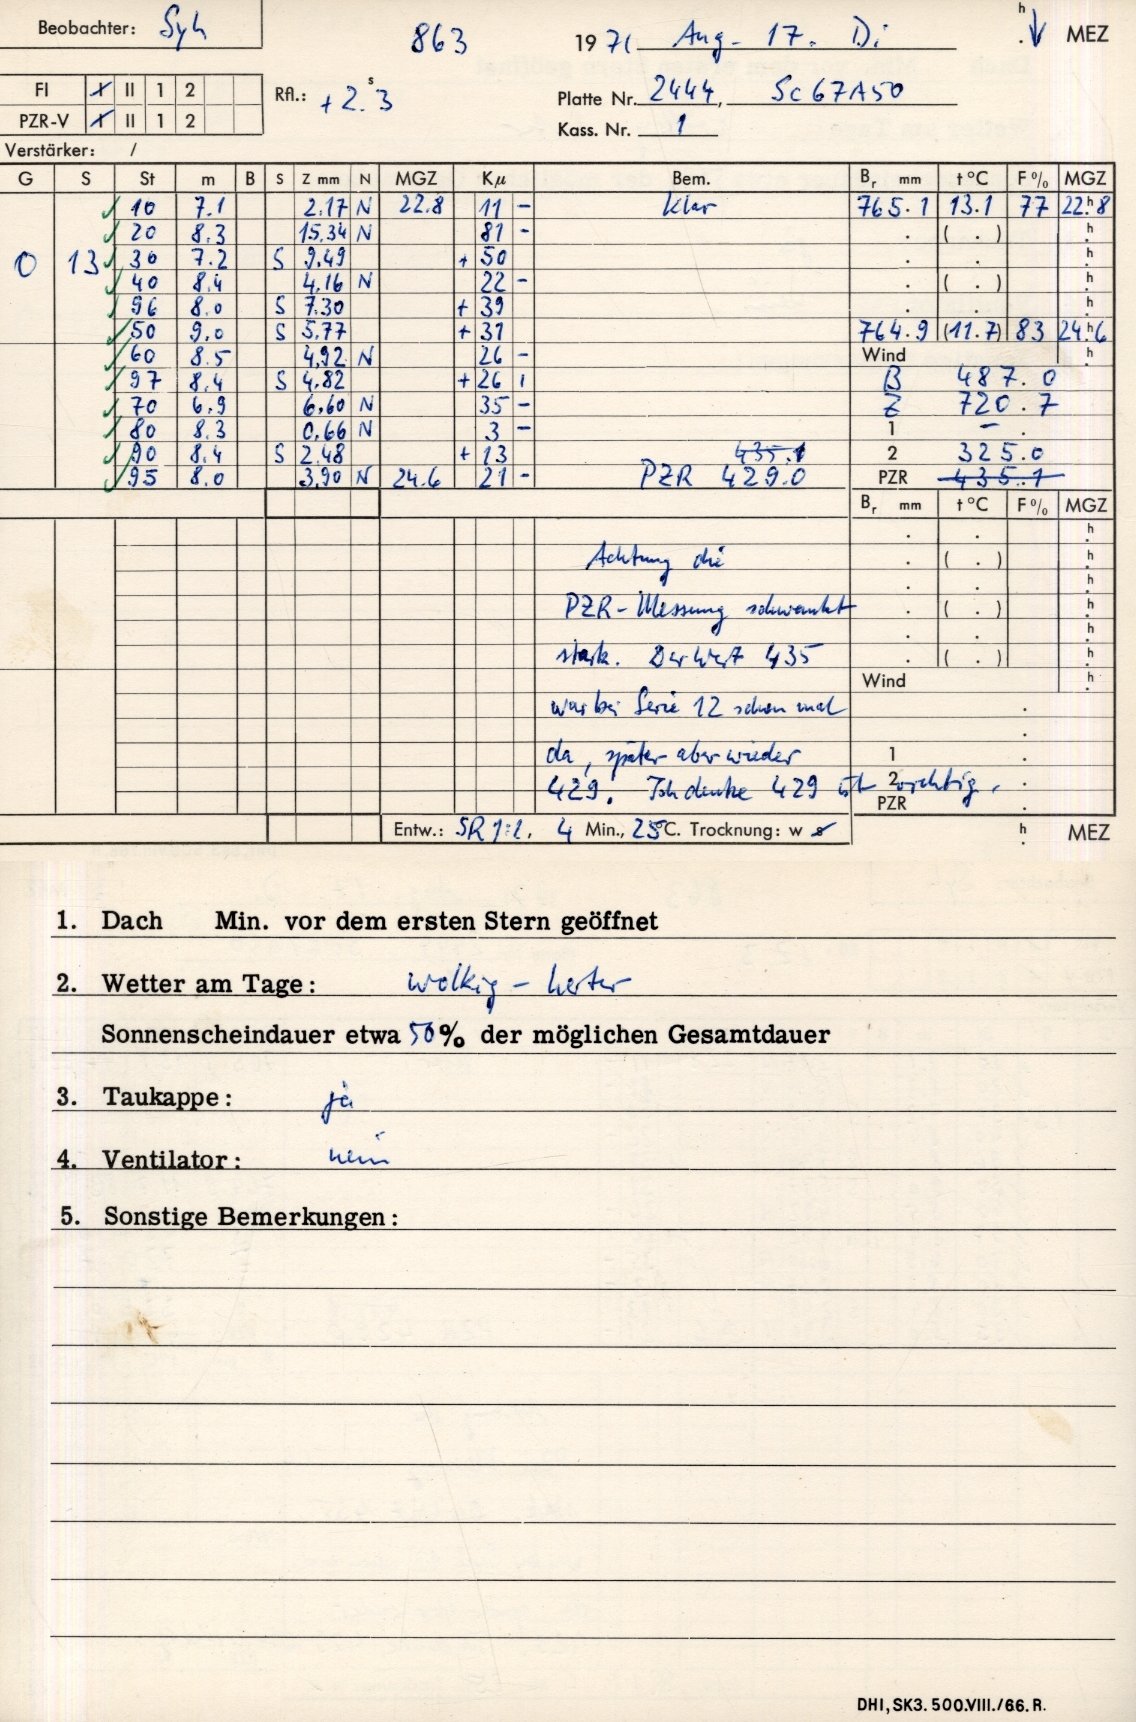 Beobachter: Syh 863 1971 Aug. 17. Di h . MEZ
FI I II 1 2 Rfl.: +2.s3 Platte Nr. 2444, Sc67A50
PZR-V I II 1 2 Kass. Nr. 1
Verstärker: /
G S St m B S Z mm N MGZ Kμ Bem. Br mm t °C F % MGZ
10 7.1 2.17 N 22.8 11 - klar 765.1 13.1 77 22.h8
20 8.3 15.34 N 81 - . ( . ) h.
0 13 30 7.2 S 9.49 + 50 . . h.
40 8.4 4.16 N 22 - . ( . ) h.
96 8.0 S 7.30 + 39 . . h.
50 9.0 S 5.77 + 31 764.9 (11.7) 83 24.h6
60 8.5 4.92 N 26 - Wind h.
97 8.4 S 4.82 + 26 B 487.0
70 6.9 6.60 N 35 - Z 720.7
80 8.3 0.66 N 3 - 1 - .
90 8.4 S 2.48 + 13 435.1 2 325.0
95 8.0 3.90 N 24.6 21 - PZR 429.0 PZR 435.1
Br mm t °C F % MGZ
. . h.
Achtung die . ( . ) h.
. . h.
PZR-Messung schwankt . ( . ) h.
. . h.
stark. Der Wert 435 . ( . ) h.
Wind h.
war bei Serie 12 schon mal .
.
da, später aber wieder 1 .
429. Ich denke 429 ist richtig. 2 .
PZR .
Entw.: SR 1:2. 4 Min., 25°C. Trocknung: w s h . MEZ
1. Dach Min. vor dem ersten Stern geöffnet
2. Wetter am Tage: wolkig - heiter
Sonnenscheindauer etwa 50% der möglichen Gesamtdauer
3. Taukappe: ja
4. Ventilator: nein
5. Sonstige Bemerkungen:
DHI, SK3. 500.VIII./66. R.